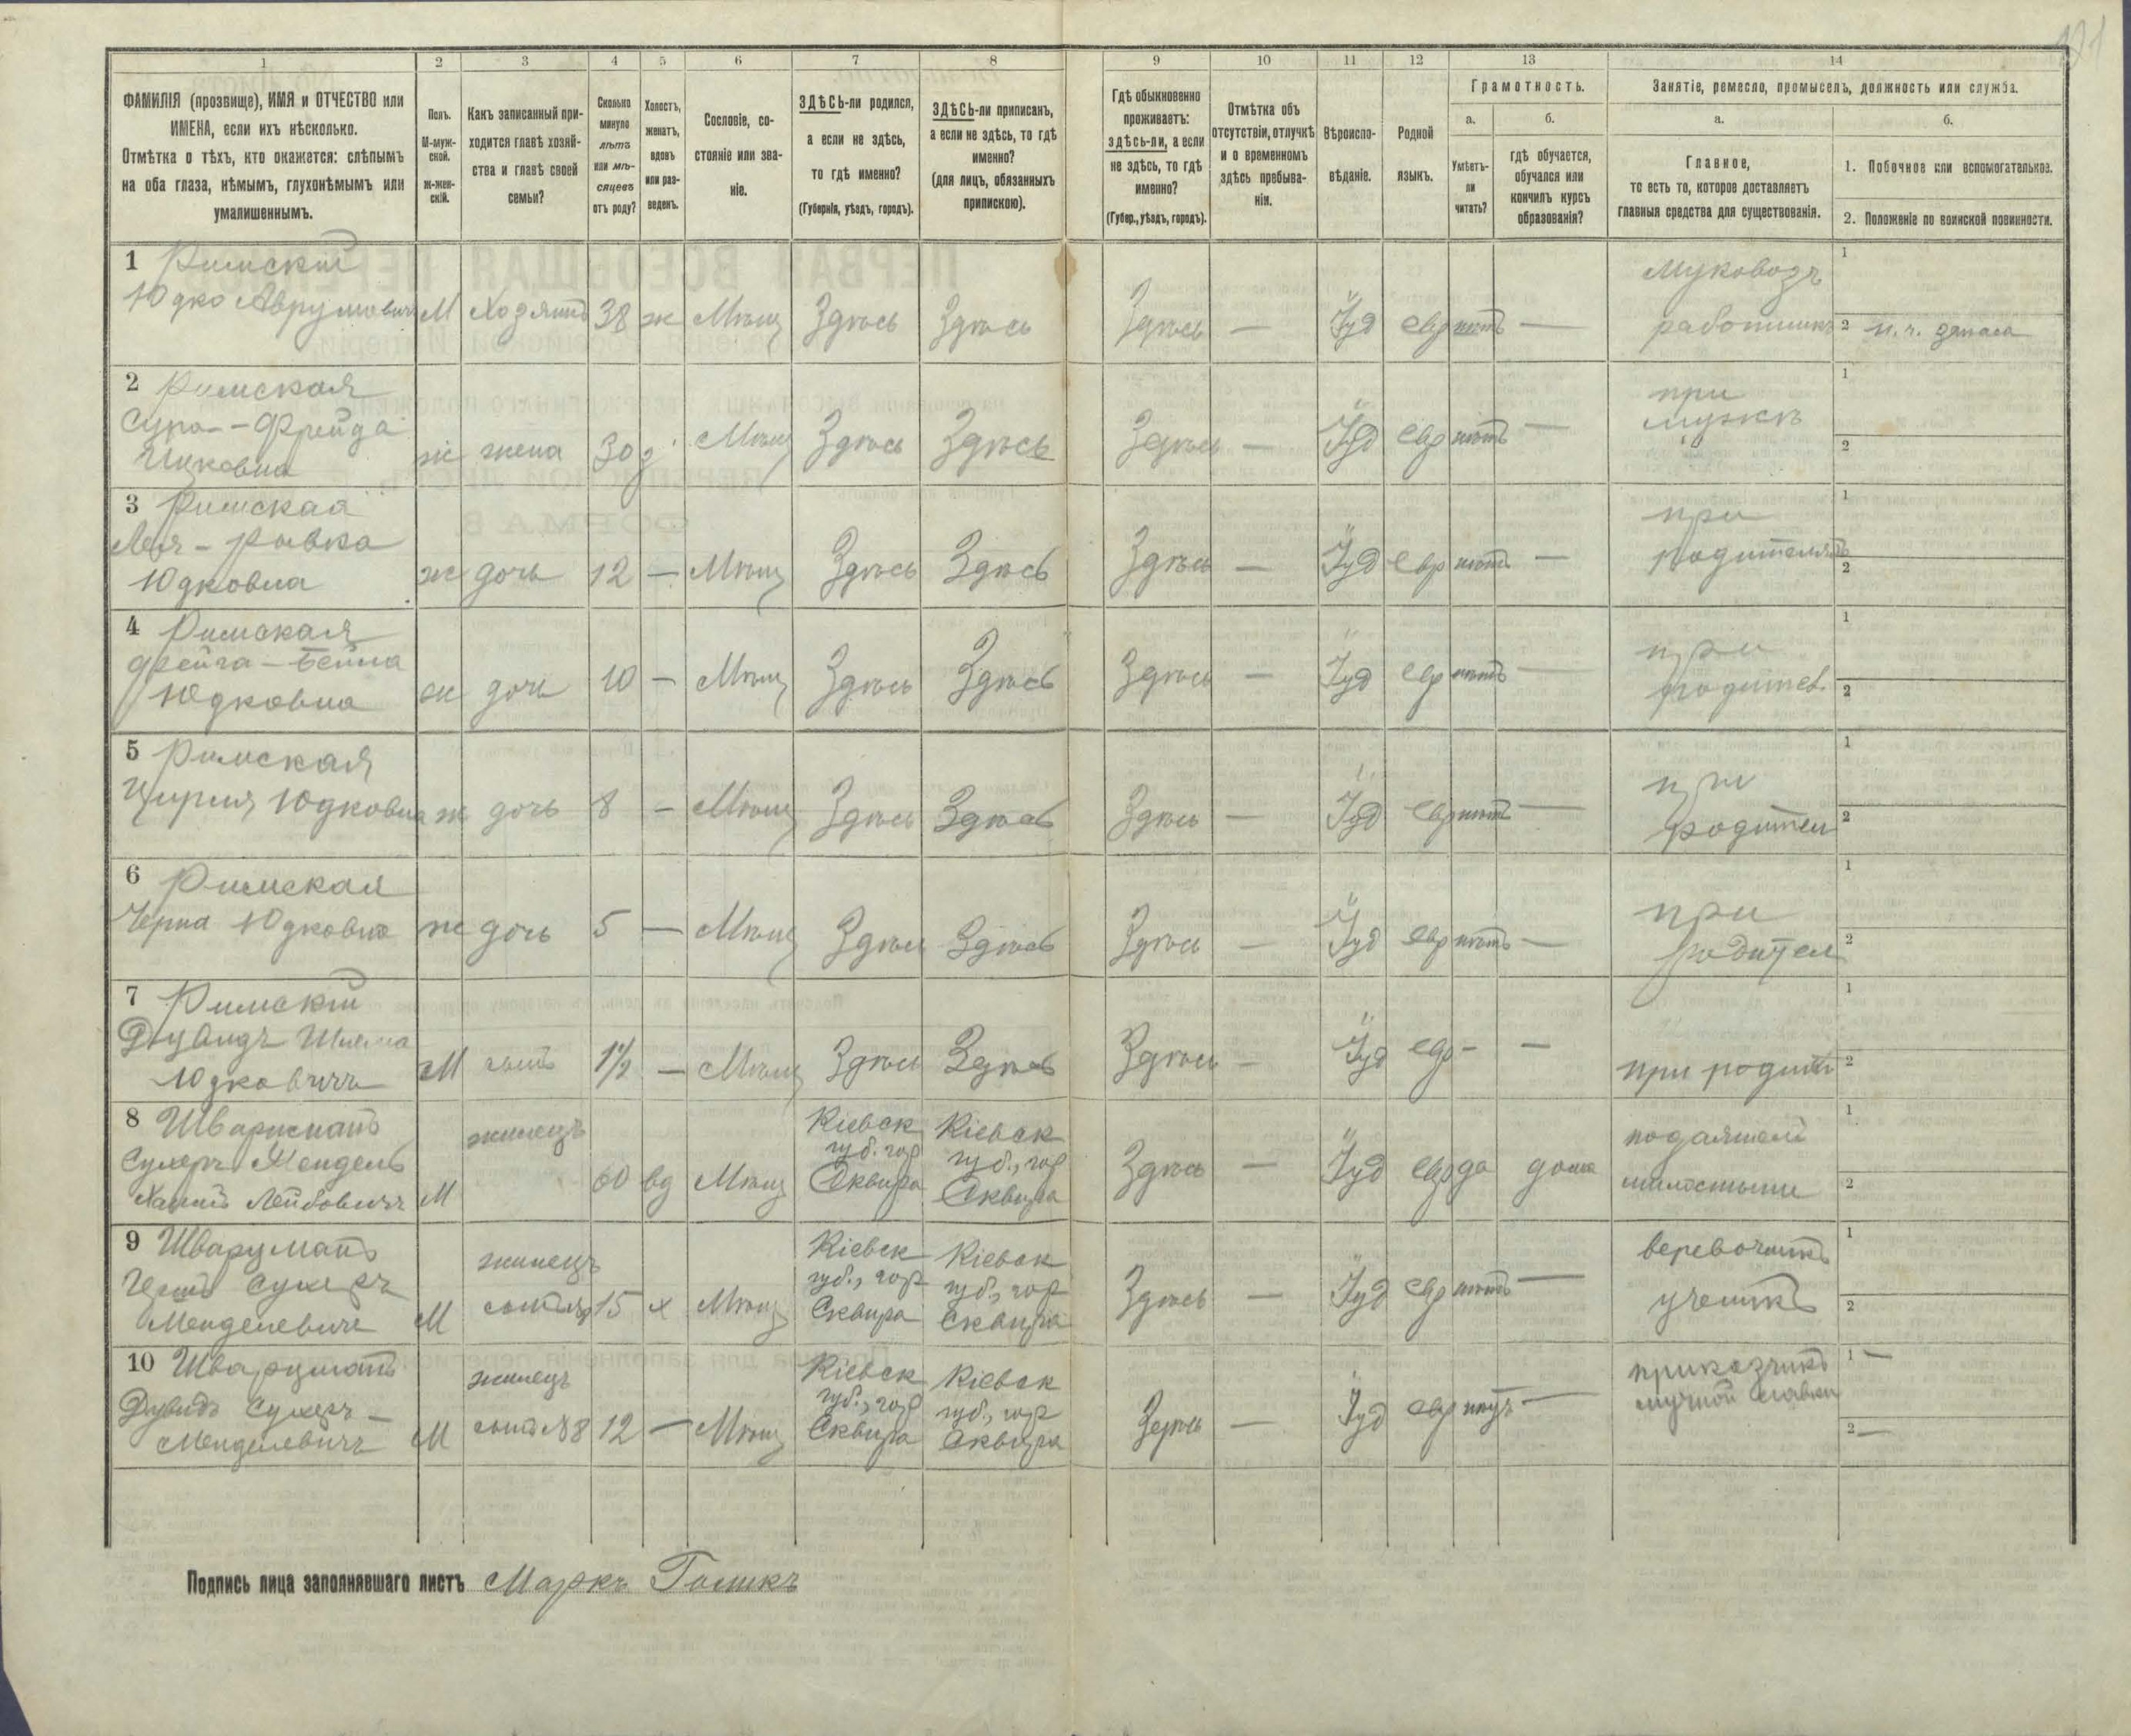 121
1 2 3 4 5 6 7 8 9 10 11 12 13 14
ФАМИЛІЯ (прозвище), ИМЯ и ОТЧЕСТВО или
ИМЕНА, если ихъ нѣсколько.
Отмѣтка о тѣхъ, кто окажется: слѣпымъ
на оба глаза, нѣмымъ, глухонѣмымъ или
умалишеннымъ.
Полъ.
М-муж-
ской.
Ж-жен-
скій.
Какъ записанный при-
ходится главѣ хозяй-
ства и главѣ своей
семьи?
Сколько
минуло
лѣтъ
или мѣ-
сяцевъ
отъ роду?
Холостъ,
женатъ,
вдовъ
или раз-
веденъ.
Сословіе, со-
стояніе или зва-
ніе.
ЗДѢСЬ-ли родился,
а если не здѣсь,
то гдѣ именно?
(Губернія, уѣздъ, городъ).
ЗДѢСЬ-ли приписанъ,
а если не здѣсь, то гдѣ
именно?
(для лицъ, обязанныхъ
припискою).
Гдѣ обыкновенно
проживаетъ:
здѣсь-ли, а если
не здѣсь, то гдѣ
именно?
(Губер., уѣздъ, городъ).
Отмѣтка объ
отсутствіи, отлучкѣ
и о временномъ
здѣсь пребыва-
ніи.
Вѣроиспо-
вѣданіе.
Родной
языкъ.
Грамотность.
а.
Умѣетъ-
ли
читать?
б.
гдѣ обучается,
обучался или
кончилъ курсъ
образованія?
Занятіе, ремесло, промыселъ, должность или служба.
а.
Главное,
то есть то, которое доставляетъ
главныя средства для существованія.
б.
1. Побочное или вспомогательное.
2. Положеніе по воинской повинности.
1 Римскій
Юдко Аврумовичъ М Хозяинъ 38 ж Мѣщ Здѣсь Здѣсь Здѣсь — Іуд евр нѣтъ —
муковозъ
работникъ
1
2 н. ч. запаса
2 Римская
Сура-Фрейда
Ицковна ж жена 30 з Мѣщ Здѣсь Здѣсь Здѣсь — Іуд евр нѣтъ —
при
мужѣ
1
2
3 Римская
Лея-Ривка
Юдковна ж дочь 12 — Мѣщ Здѣсь Здѣсь Здѣсь — Іуд евр нѣтъ —
при
родителяхъ
1
2
4 Римская
Фейга-Бейла
Юдковна ж дочь 10 — Мѣщ Здѣсь Здѣсь Здѣсь — Іуд евр нѣтъ —
при
родител
1
2
5 Римская
Юдковна ж дочь 8 — Мѣщ Здѣсь Здѣсь Здѣсь — Іуд евр нѣтъ —
при
родител
1
2
6 Римская
Черна Юдковна ж дочь 5 — Мѣщ Здѣсь Здѣсь Здѣсь — Іуд евр нѣтъ —
при
родител
1
2
7 Римскій
Юдковичъ М сынъ 1½ — Мѣщ Здѣсь Здѣсь Здѣсь — Іуд евр — —
при родит
1
2
8 Шварцманъ
Сухеръ Мендель
Лейбовичъ М
жилецъ
60 вд Мѣщ
Кіевск
губ. гор
Сквира
Кіевск
губ., гор
Сквира
Здѣсь — Іуд евр да дома
подаяніемъ
милостыни
1
2
9 Шварцманъ
Сухеръ
Менделевичъ М
жилецъ
сынъ 15 х Мѣщ
Кіевск
губ., гор
Сквира
Кіевск
губ., гор
Сквира
Здѣсь — Іуд евр нѣтъ —
веревочникъ
ученикъ
1
2
10 Шварцманъ
Дувидъ Сухеръ-
Менделевичъ М
жилецъ
сынъ №8 12 — Мѣщ
Кіевск
губ., гор
Сквира
Кіевск
губ., гор
Сквира
Здѣсь — Іуд евр —
приказчикъ
мучной лавки
1 —
2 —
Подпись лица заполнявшаго листъ Маркъ Голикъ